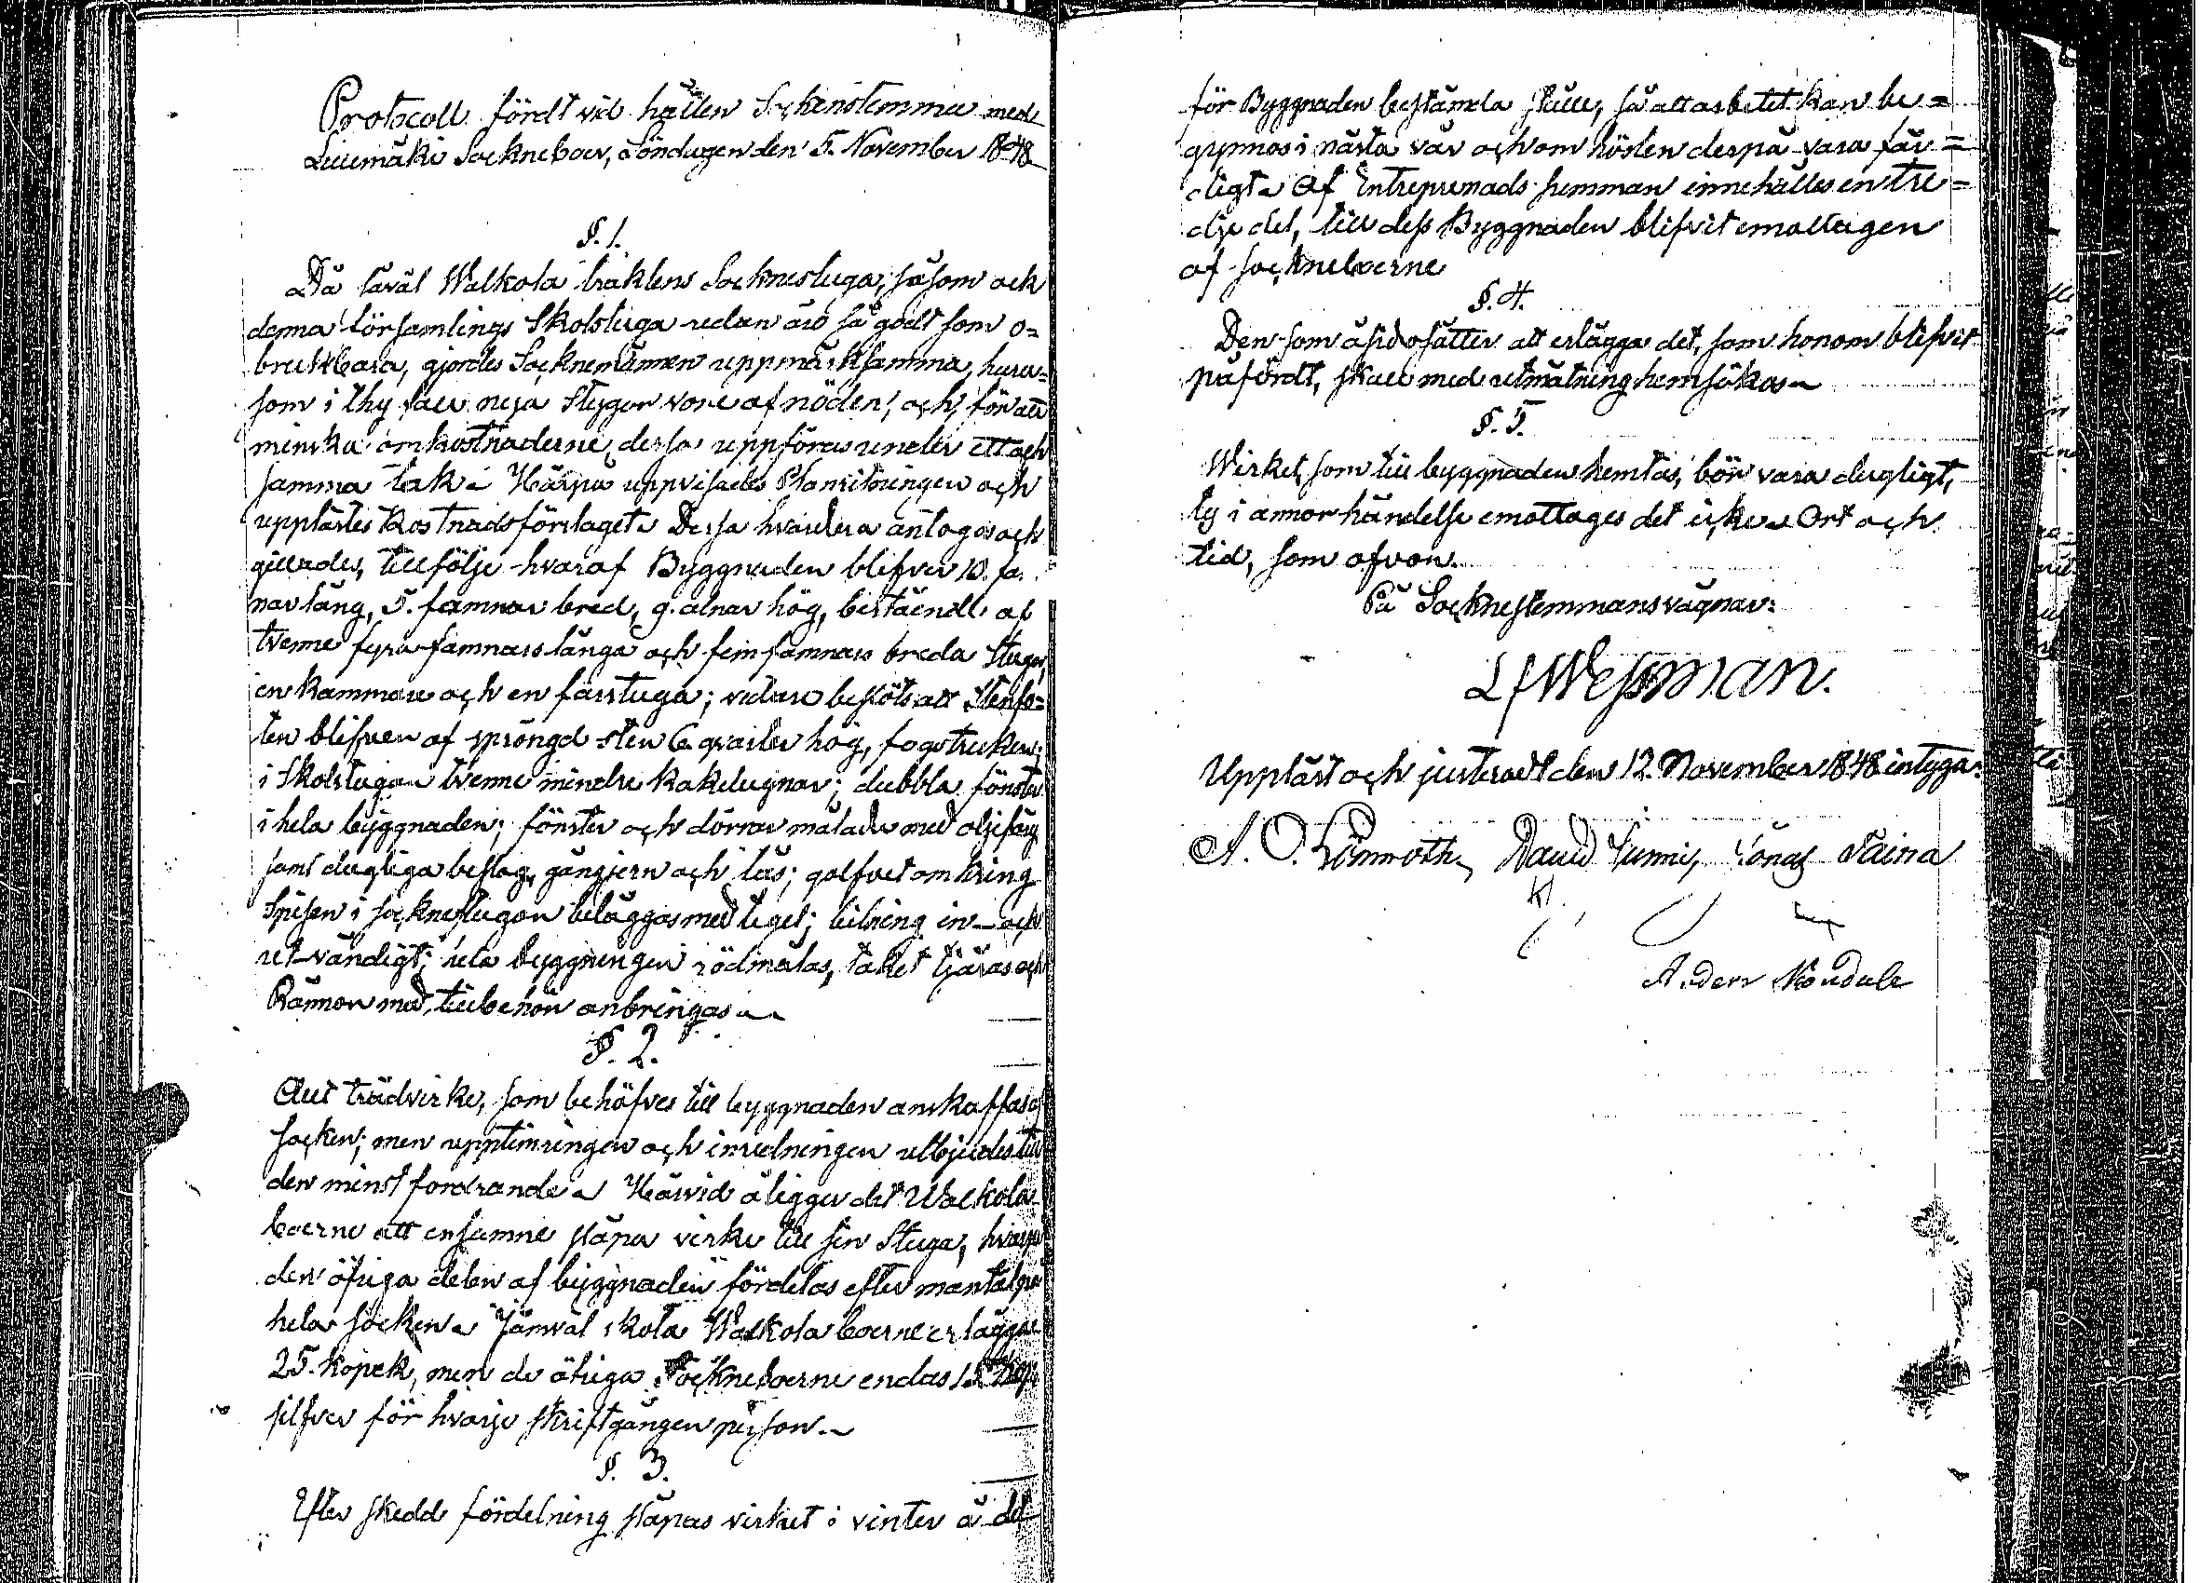 Protocoll fördt vid hållen Sockenstemma med
Luumäki Sockneboer, Söndagen den 5. November 1848
§. 1.
Då såväl Walkola traktens Socknestuga, såsom ock
denna församlings Skolstuga redan äro så godt som o=
brukbara, gjordes Socknemännen uppmärksamma, huru=
som i thy fall nya Stugor vore af nöden, och, för att
minska omkostnaderne, dessa uppföras under ett och
samma tak. Härpå uppvisades Planritningen och
upplästes Kostnadsförslaget. Dessa hvardera antogos och
gillades, tillfölje hvaraf Byggnaden blifver 10. fa.
nar lång, 5. famnar bred, 9. alnar hög, bestående af
tvenne fyra famnars långa och fem famnars breda Stugor,
en kammare och en farstuga; vidare beslöts att Stenfo=
ten blifver af sprängd sten 6 qvarter hög, fogstruken;
i Skolstugan tvenne mindre kakelugnar; dubbla fönster
i hela byggnaden; fönster och dörrar målade med oljefärg
samt dugliga beslag, gångjern och lås; golfvet omkring
Spisen i socknestugan beläggas med tegel; bilning in- och
ut-vändigt; hela byggningen rödmålas, taket tjäras och
Rännor med tillbehör anbringas.
§. 2.
Allt trädvirke, som behöfves till byggnaden anskaffas af
socken; men upptimringen och inredningen utbjudes till
den minst fordrande. Härvid åligger det Walkola
boerne att ensamne släpa virke till sin Stuga, hvarpå
den öfriga delen af byggnaden fördelas efter mantal på
hela socken. Jämväl skola Walkola boerne erlägga
25. kopek, men de öfriga Sockneboerne endas 15 kop.
silfver för hvarje skriftgången person.
§. 3.
Efter skedd fördelning släpas virket i vinter å det
för Byggnaden bestämda ställe, så att arbetet kan be=
gynnas i nästa vår och om hösten derpå vara fär=
digt. Af Entreprenads summan innehålles en tre=
dje del, till dess Byggnaden blifvit emottagen
af sockneboerne
§. 4.
Den som åsidosätter att erlägga det, som honom blifvit
påfördt, skall med utmätning hemsökas.
§. 5.
Wirket, som till byggnaden hemtas, bör vara dugligt,
ty i annor händelse emottages det icke. Ort och
tid, som ofvan.
På Socknestemmans vägnar:
L f Wessman.
Uppläst och justeradt den 12. November 1848 intyga:
A. O. Lönnroth, David Summi, Jonas Taina
Anders Noudala